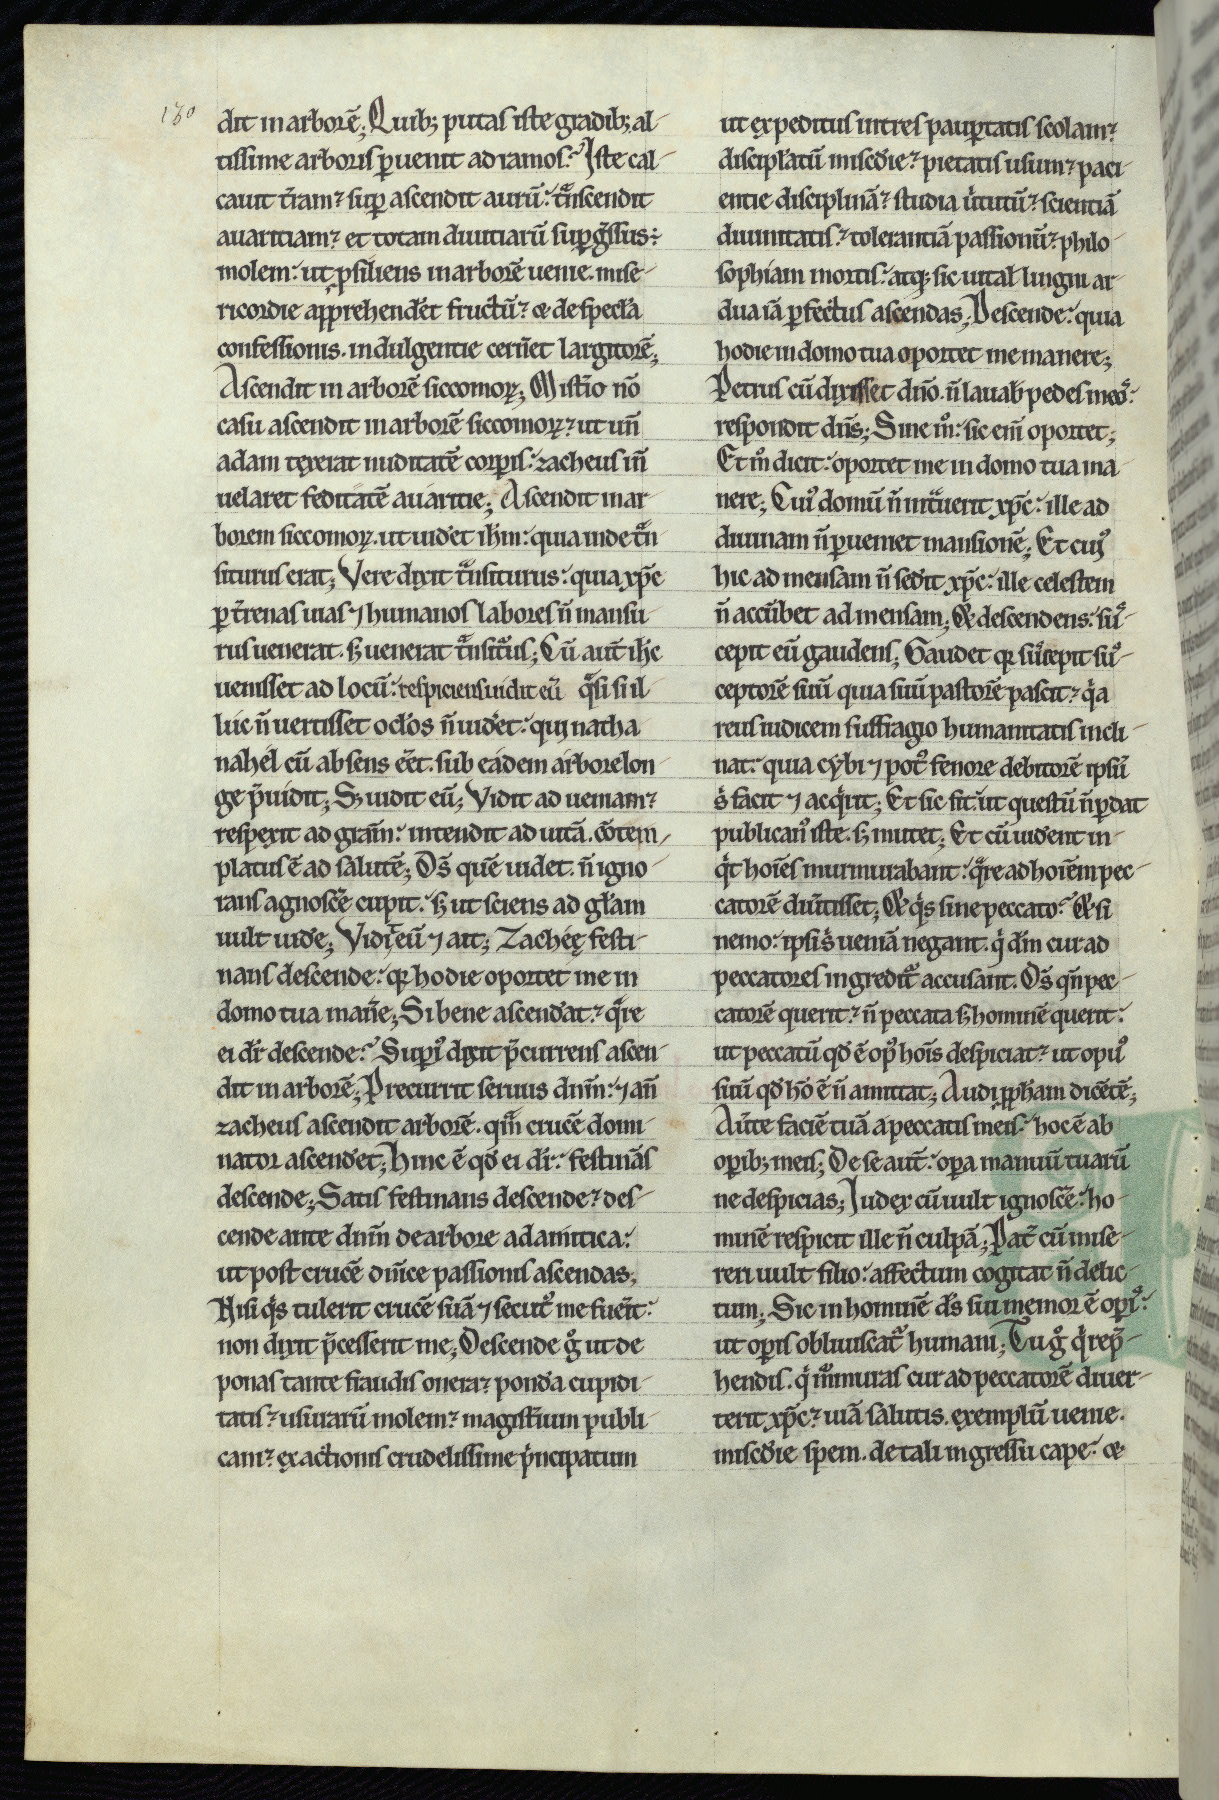 130
dit in arborē; Quib; putas iste gradib; al-
tissime arboris puenit ad ramos? Iste cal-
cauit t̄ram; sup ascendit aurū: t̄nscendit
auaritiam; et totam diuitiarū sup̄gssus:
molem: ut psiliens in arborē uenie. mise-
ricordie apprehenderet fructū; & de specła
confessionis. indulgentie cern̄et largitorē;
Ascendit in arborē siccomoꝝ; Misťio nō
casu ascendit in arborē siccomoꝝ; ut un̄
adam texerat nuditatē corpis: zacheus in̄
uelaret feditatē auaritie; Ascendit in ar-
borem siccomoꝝ. ut uid'et ih̄m: quia inde t̄n
siturus erat; Vere dixit t̄nsiturus: quia xp̄c
p t̄renas uias ⁊ humanos labores n̄ mansu-
rus uenerat. s; uenerat t̄nsitur᷒; Cū aut̄ ih̄c
uenisset ad locū: respiciens uidit eū q̄si si il-
luc n̄ uertisset ocl'os n̄ uid'et: qui natha
nahel cū absens eēt. sub eadem arbore lon-
ge p̄uidit; S; uidit eū; Vidit ad ueniam;
respexit ad grām: intendit ad uitā. cōtem-
platus ē ad salutē; Ds̄ quē uidet. n̄ igno
rans agnoscē cupit: s; ut sciens ad gl̄am
uult uid'e; Vidit eū ⁊ ait; Zachęę festi-
nans descende: qꝛ hodie oportet me in
domo tua man̄e; Si bene ascend'at; q̄re
ei dr̄ descende? Superi᷒ dixit p̄currens ascen-
dit in arborē; Precurrit seruus dnm̄: ⁊ an̄
zacheus ascendit arborē. qm̄ crucē domi-
nator ascend'et; Hinc ē qd' ei dr̄: festināS
descende; Satis festinans descende; des-
cende ante dnm̄ de arbore adamitica:
ut post crucē dn̄ice passionis ascendas;
Nisi q̇s tulerit crucē suā ⁊ secut᷒ me fuer̄it:
non dixit p̄cesserit me; Descende g̊ ut de
ponas tante fraudis onera; pond'a cupidi-
tatis; usurarū molem; magist̄ium publi-
cani; exactionis crudelissime ṗncipatum
ut expeditus intres paup̄tatis scolam;
discipl'atū misc̄die; pietatis usum; paci-
entie disciplinā; studia u̇tutū; scientiā
diuinitatis; tolerantiā passionū; philo-
sophiam mortis: atq; sic uital' lingni ar-
dua iā pfectus ascendas; Descende: quia
hodie in domo tua oportet me manere;
Petrus cū dixisset dn̄o. n̄ lauab' pedes meo᷒:
respondit dn̄s; Sine m̊: sic eni̅ oportet;
Et m̊ dicit: oportet me in domo tua ma-
nere; Cui᷒ domū n̄ int̄uerit xp̄c: ille ad
diuinam n̄ pueniet mansionē; Et cui᷒
hic ad mensam n̄ sed'it xp̄c: ille celestem
n̄ accūbet ad mensam; & descendens: su᷒-
cepit eū gaudens; Gaudet qꝛ su᷒cepit su᷒-
ceptorē suū quia suū pastorē pascit; q̇a
reus iudicem suffragio humanitatis incli-
nat: quia cybi ⁊ pot᷒ fenore debitorē ipsū
s̊ facit ⁊ acq̇rit; Et sic fit: ut questū n̄ pdat
publican᷒ iste. s; mutet; Et cū uid'ent in-
q̇t hoīes murmurabant: q̄re ad hoīem pec-
catorē diu̇tisset; & q̇s sine peccato? & si
nemo: ipsi s̊ ueniā negant. q̇ dn̄m cur ad
peccatores ingredit᷒ accusant. Ds̄ qn̄ pec-
catorē querit; n̄ peccata s; hominē querit:
ut peccatū qd' ē op᷒ hoīs despiciat; ut opu᷒
suū qd' hō ē n̄ amittat; Audi pp̄ham dicētē;
Au̇te faciē tuā a peccatis meis: hoc ē ab
opib; meis; De se aut̄: opa manuū tuarū
ne despicias; Iudex cū uult ignoscē: ho-
minē respicit ille n̄ culpā; Pat̄ cū mise-
reri uult filio: affectum cogitat n̄ delic-
tum; Sic in hominē ds̄ sui memor ē opi᷒:
ut opis obliuiscat᷒ humani; Tu g̊ q̇ rep̄-
hendis. q̇ m᷒muras cur ad peccatorē diuer-
terit xp̄c; uiā salutis. exemplū uenie.
misc̄die spem. de tali ingressu cape: &